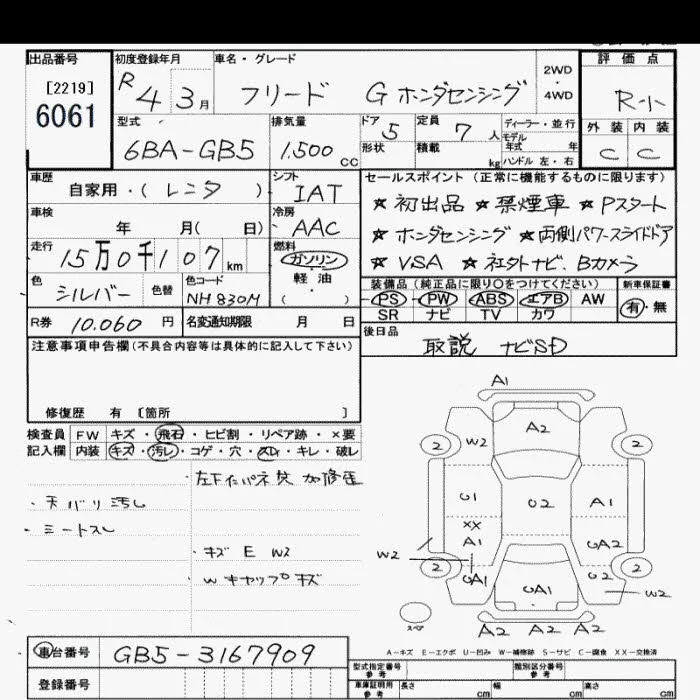 出品番号 初度登録年月 車名・グレード 2WD・4WD 評価点
[2219]
6061
R 4 3月 フリード G ホンダセンシング R-小
型式 排気量 ドア 定員 ディーラー・並行 外装 内装
6BA-GB5 1.500cc 5 7人 モデル年式 年式 C C
形状 積載 kg ハンドル 左・右
車歴 シフト セールスポイント (正常に機能するものに限ります)
自家用・(レンタ) IAT ★初出品 ★禁煙車 ★Pスタート
車検 冷房
年 月(日) AAC ★ホンダセンシング ★両側パワースライドドア
走行 燃料
15万0千107km ガソリン・軽油・( ) ★VSA ★社外ナビ、Bカメラ
色 色替 色コード 装備品 (純正品に限り○をつけてください) 新車保証書
シルバー NH830M PS PW ABS エアB AW 有・無
SR ナビ TV カワ
R券 10.060円 名変通知期限 月 日
後日品
取説 ナビSD
注意事項申告欄(不具合内容等は具体的に記入して下さい)
修復歴 有 [箇所 ]
検査員 FW キズ・飛石・ヒビ割・リペア跡・×要
記入欄 内装 キズ・汚レ・コゲ・穴・スレ・キレ・破レ
・天バリ汚レ
・シートスレ
・キズ E W2
・Wキャップキズ
A1
A2
2 W2 2
U1 U2 A1
XX
A1 UA2
W2
2 UA1 UA1 U2 2
W2
スペア
A2 A2 A2
A-キズ E-エクボ U-凹み W-補修跡 S-サビ C-腐食 XX-交換済
車台番号 GB5-3167909
登録番号
型式指定番号 参考 類別区分番号 参考
車庫証明用 参考 長さ cm 幅 cm 高さ cm